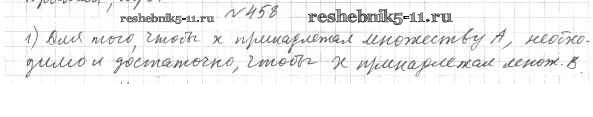 №458
reshebnik5-11.ru reshebnik5-11.ru
1) Для того, чтобы х принадлежал множеству А, необхо-
димо и достаточно, чтобы х принадлежал множ. В.